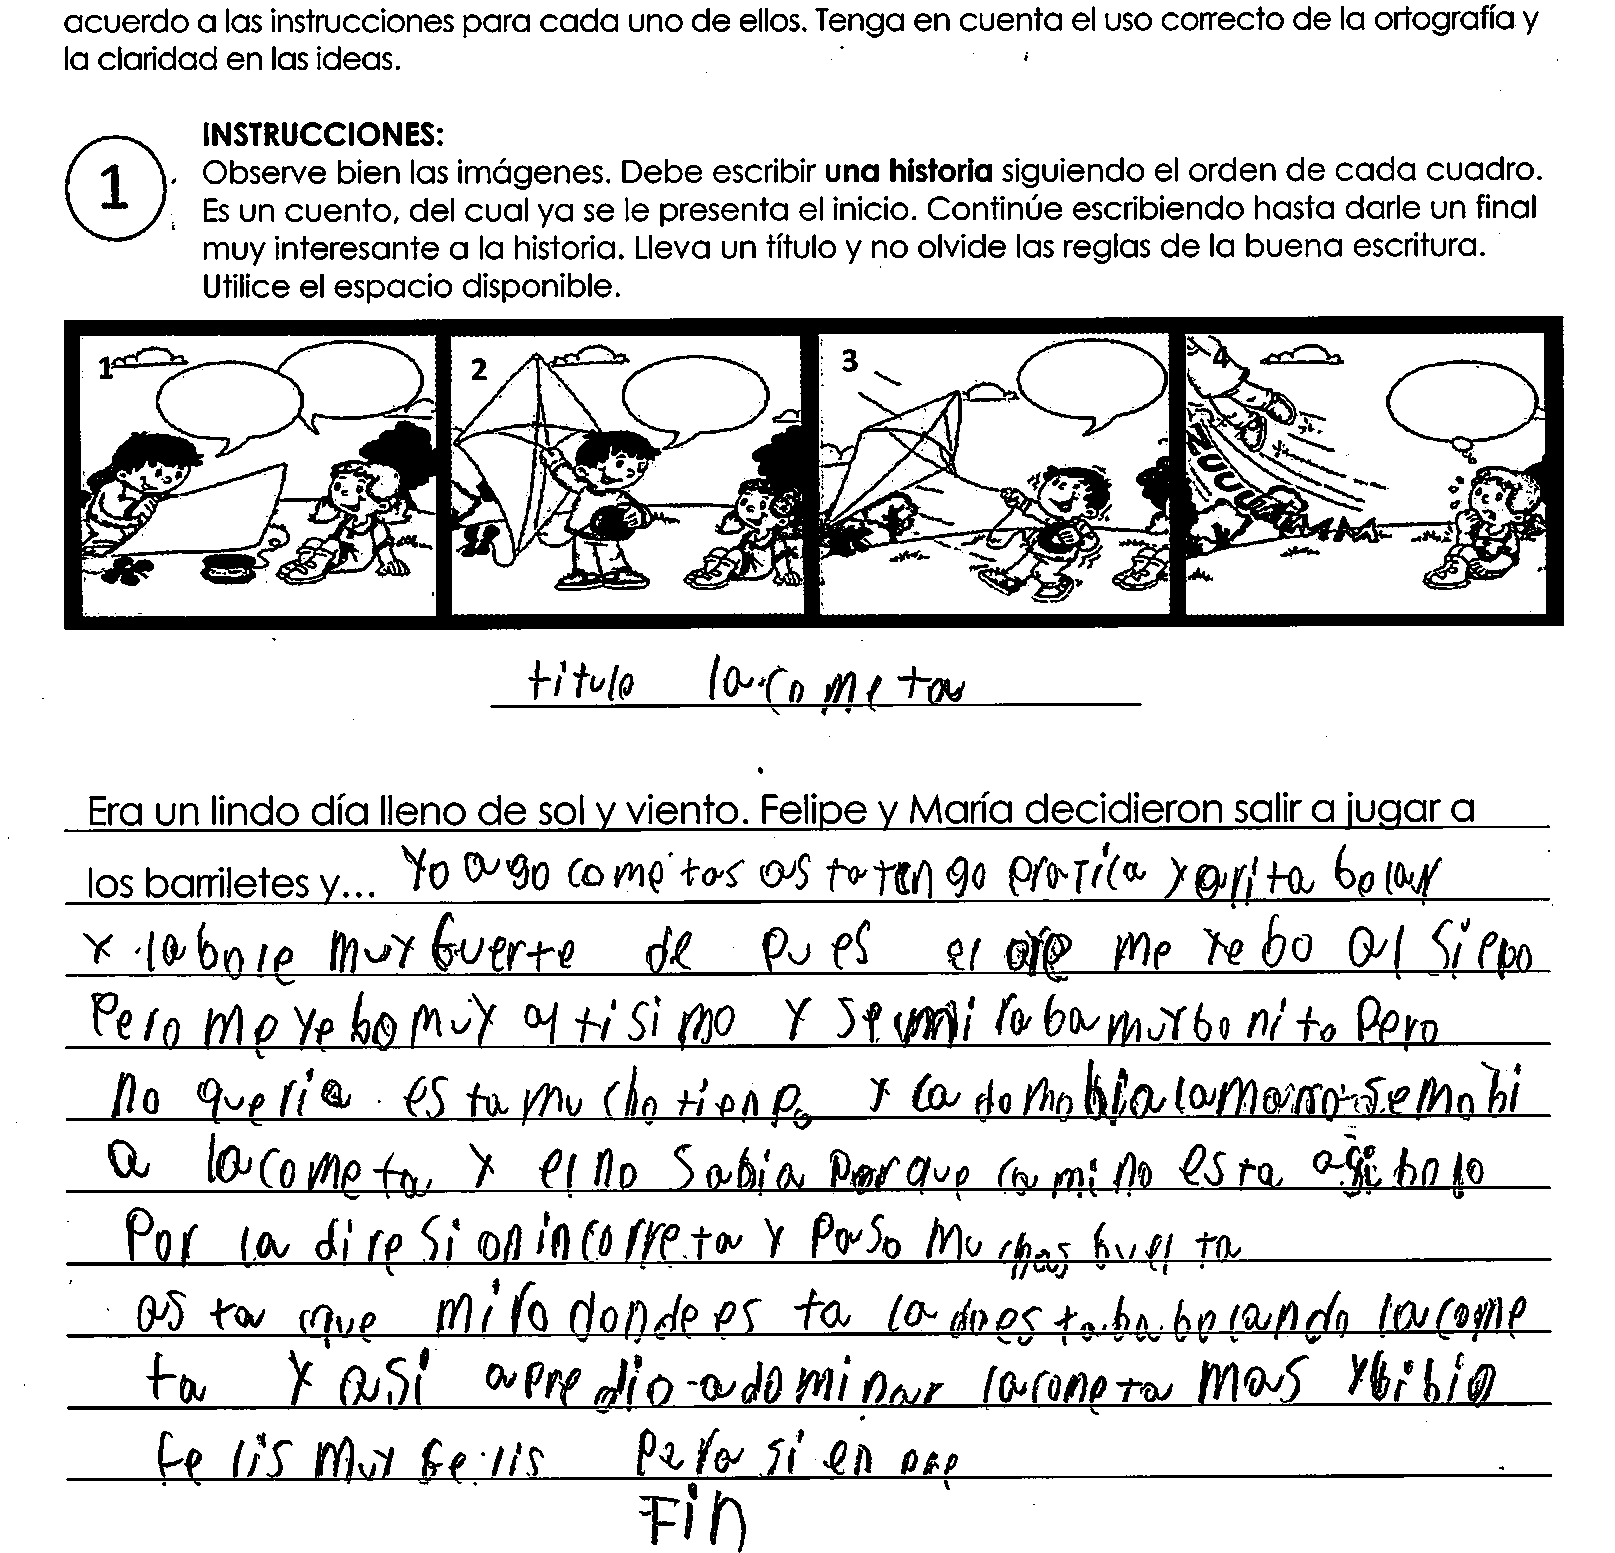 acuerdo a las instrucciones para cada uno de ellos. Tenga en cuenta el uso correcto de la ortografía y
la claridad en las ideas.
1
INSTRUCCIONES:
Observe bien las imágenes. Debe escribir una historia siguiendo el orden de cada cuadro.
Es un cuento, del cual ya se le presenta el inicio. Continúe escribiendo hasta darle un final
muy interesante a la historia. Lleva un título y no olvide las reglas de la buena escritura.
Utilice el espacio disponible.
1 2 3 4
titulo la cometa
Era un lindo día lleno de sol y viento. Felipe y María decidieron salir a jugar a
los barriletes y... Yo ago cometas asta tengo pratica y arita bolar
y la bole muy fuerte de pues el aire me yebo al siepo
Pero me yebo muy altisimo y se miraba muy bonito Pero
no queria esta mucho tienpo y cado mobia la mano se mobi
a la cometa y el no sabia Porque camino esta agi bolo
Por la diresion incorreta y Paso muchas buelta
asta que miro donde esta cado estaba bolando la come
ta y asi apredio a dominar la cometa mas y bibio
felis muy felis Para sienpre
Fin